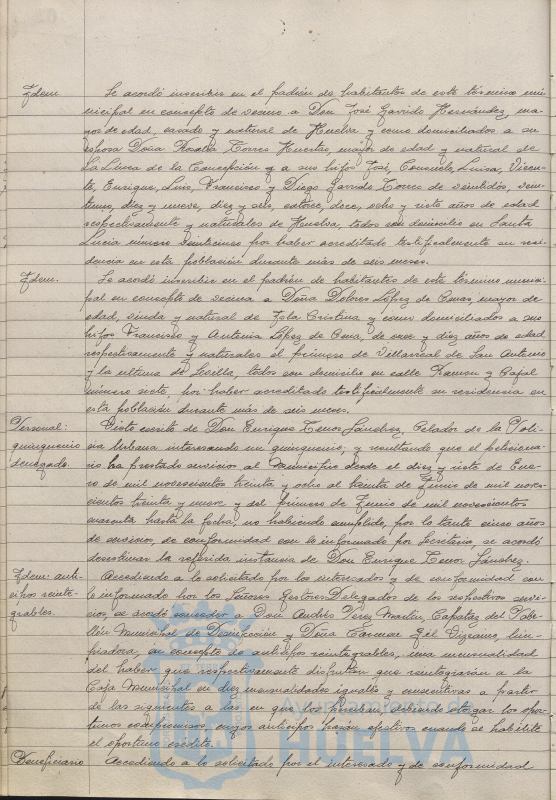 Idem. Se acordó inscribir en el padrón de habitantes de este término mu-
nicipal en concepto de vecino a Don José Garrido Hernández, ma-
yor de edad, casado y natural de Huelva y como domiciliados a su
esposa Doña Rosalía Torres Huertas, mayor de edad y natural de
La Línea de la Concepción y a sus hijos José, Consuelo, Luisa, Vicen-
te, Enrique, Luis, Francisco y Diego Garrido Torres de veintidós, vein-
tiuno, diez y nueve, diez y seis, catorce, doce, ocho y siete años de edad
respectivamente y naturales de Huelva, todos con domicilio en Santa
Lucía número veinticinco por haber acreditado testificalmente su resi-
dencia en esta población durante más de seis meses.
Idem. Se acordó inscribir en el padrón de habitantes de este término munici-
pal en concepto de vecina a Doña Dolores López de mayor de
edad, viuda y natural de Isla Cristina y como domiciliados a sus
hijos Francisco y Antonia López de de once y diez años de edad
respectivamente y naturales el primero de Villarreal de San Antonio
y la última de Sevilla, todos con domicilio en calle Ramón y Cajal
número siete, por haber acreditado testificalmente su residencia en
esta población durante más de seis meses.
Personal: Visto escrito de Don Enrique Tenor Sánchez, Celador de la Poli-
quinquenio cía Urbana interesando un quinquenio, y resultando que el peticiona-
denegado. rio ha prestado servicios al Municipio desde el diez y siete de Ene-
ro de mil novecientos treinta y ocho al treinta de Junio de mil nove-
cientos treinta y nueve, y del primero de Junio de mil novecientos
cuarenta hasta la fecha, no habiendo cumplido, por lo tanto cinco años
de servicio, de conformidad con lo informado por Secretaría, se acordó
desestimar la referida instancia de Don Enrique Tenor Sánchez.
Idem: anti- Accediendo a lo solicitado por los interesados y de conformidad con
cipos reinte- lo informado por los Señores Gestores Delegados de los respectivos servi-
grables. cios, se acordó conceder a Don Andrés Pérez Martín, Capataz del Pabe-
llón Municipal de Desinfección y Doña Carmen Gil Vizcaino, lim-
piadora, en concepto de anticipos reintegrables, una mensualidad
del haber que respectivamente disfrutan, que reintegrarán a la
Caja Municipal en diez mensualidades iguales y consecutivas a partir
de las siguientes a las en que los perciban, debiendo otorgar los opor-
tunos compromisos, cuyos anticipos harán efectivos cuando se habilite
el oportuno crédito.
Beneficiario Accediendo a lo solicitado por el interesado y de conformidad
Ayuntamiento de
HUELVA